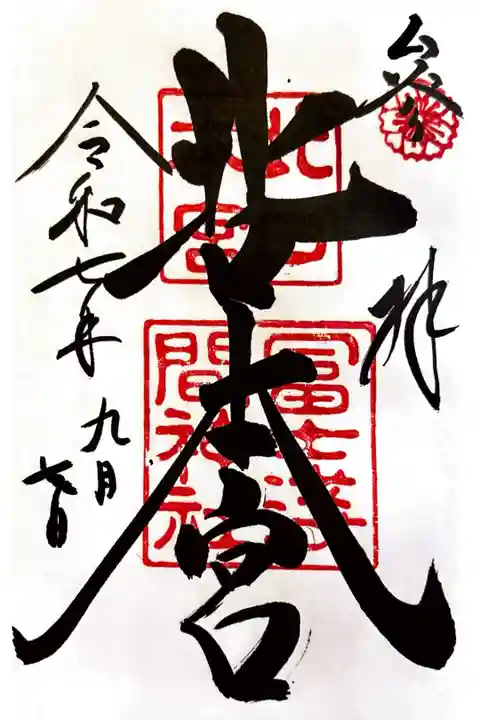 参拝
北口
本宮
北口本宮
冨士浅
間神社
令和七年九月
七日